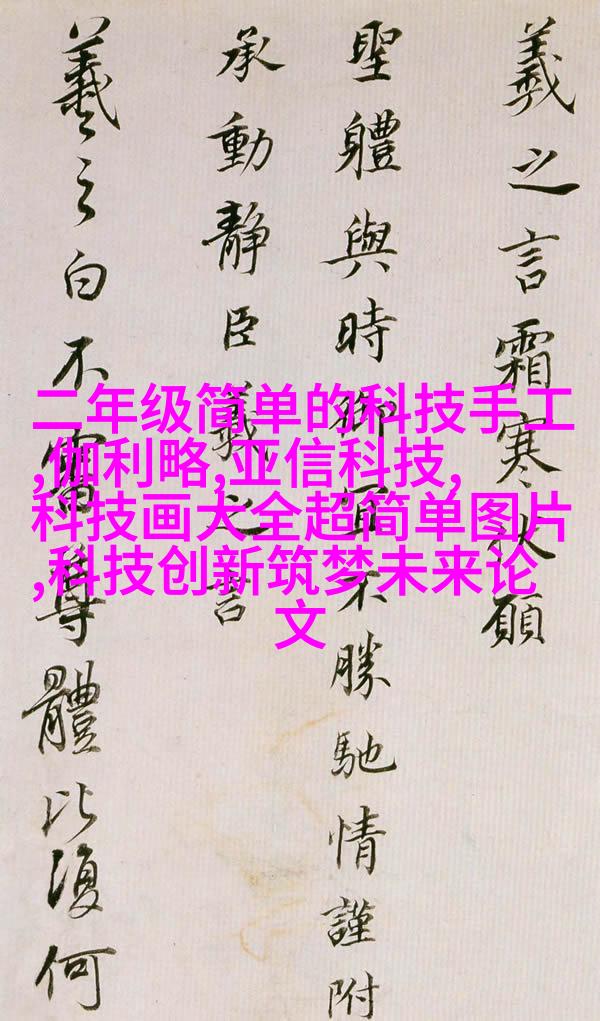 羲之言霜寒伏願
聖體與時御宜不勝馳情謹附
承動靜臣羲之言
羲之白不審尊體比復何
二年级简单的科技手工
,伽利略,亚信科技,
科技画大全超简单图片
,科技创新筑梦未来论
文